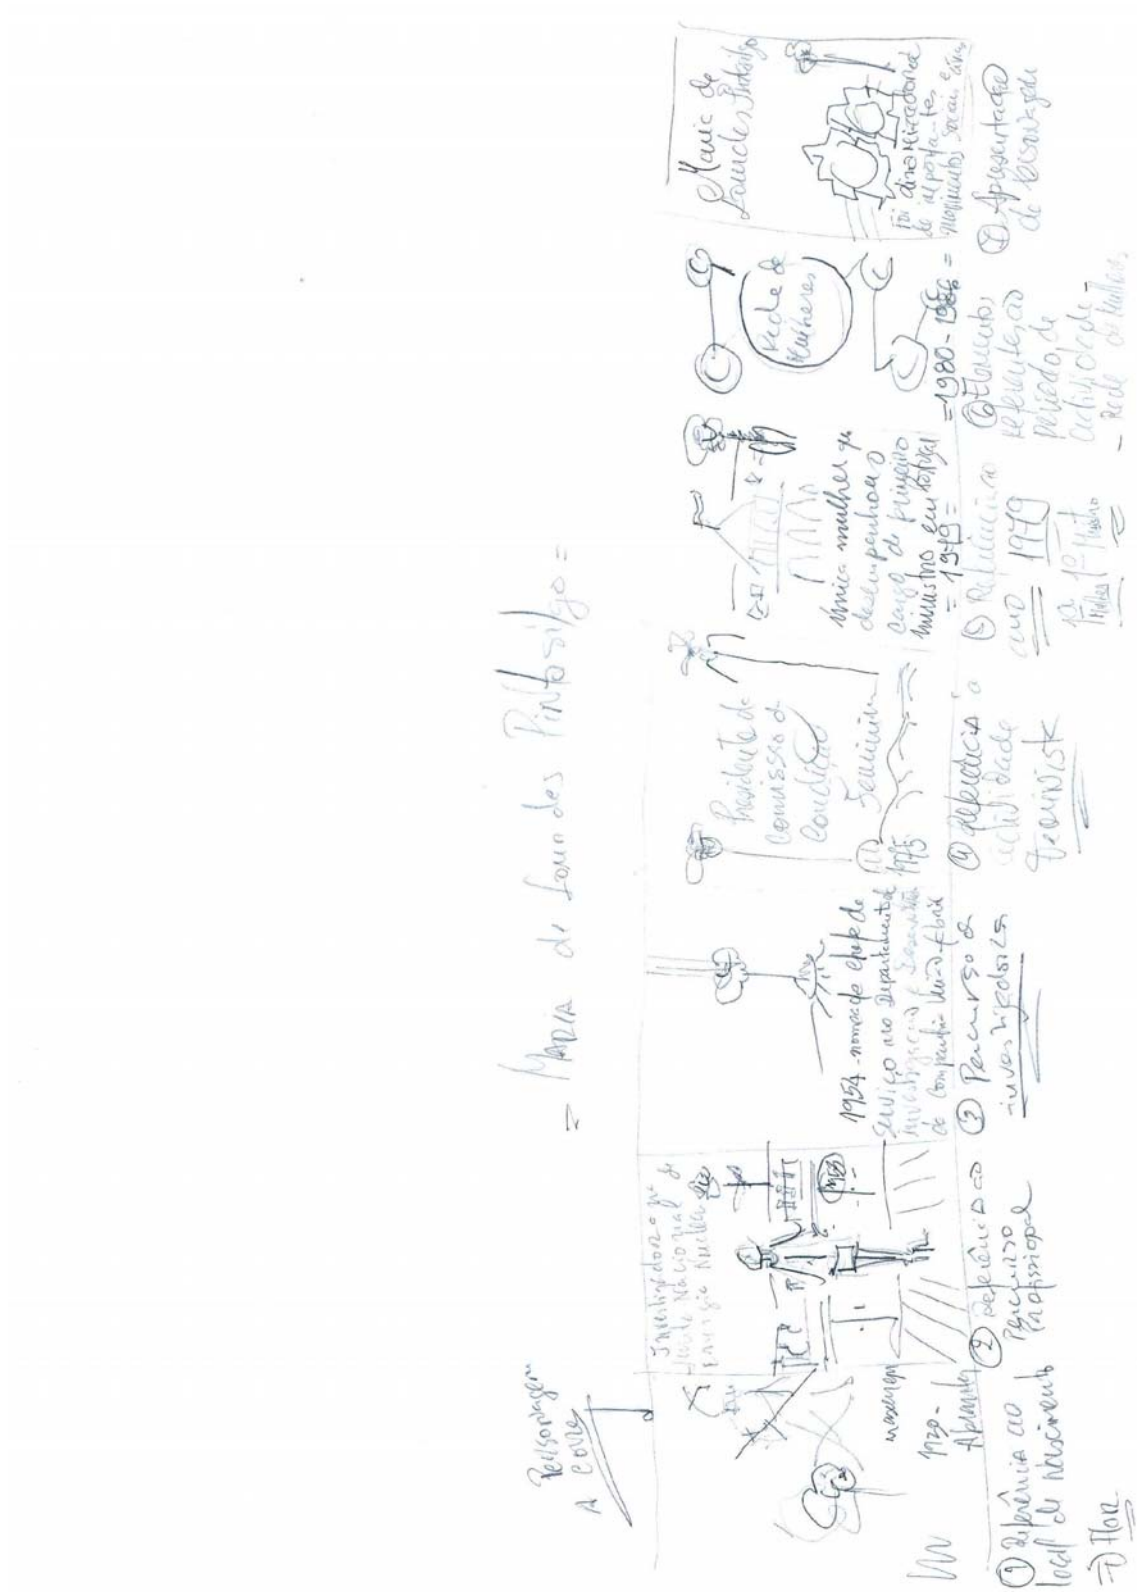 = MARIA de Lourdes Pintasilgo =
Personagem
A cores
nasceu em
1930 -
Abrantes
① Referência ao
local de nascimento
Flor
Investigadora
Junta Nacional de
Energia Nuclear
② Referência ao
Percurso
Profissional
1954 - nomeada chefe de
Serviço no Departamento de
investigação e
da Companhia União Fabril
③ Percurso de
investigadora
Presidente da
Comissão da
Condição
Feminina
1975
④ Referência a
actividade
feminista
Única mulher que
desempenhou o
cargo de primeiro
ministro em Portugal
= 1979 =
⑤ Referência ao
ano 1979
1ª Mulher 1º Ministro
Rede de
Mulheres
=1980-1986=
⑥ Elementos
referentes ao
período de
actividade -
- Rede de Mulheres -
Maria de
Lourdes Pintasilgo
Foi dinamizadora
de importantes
movimentos sociais e
⑦ Apresentação
da personagem